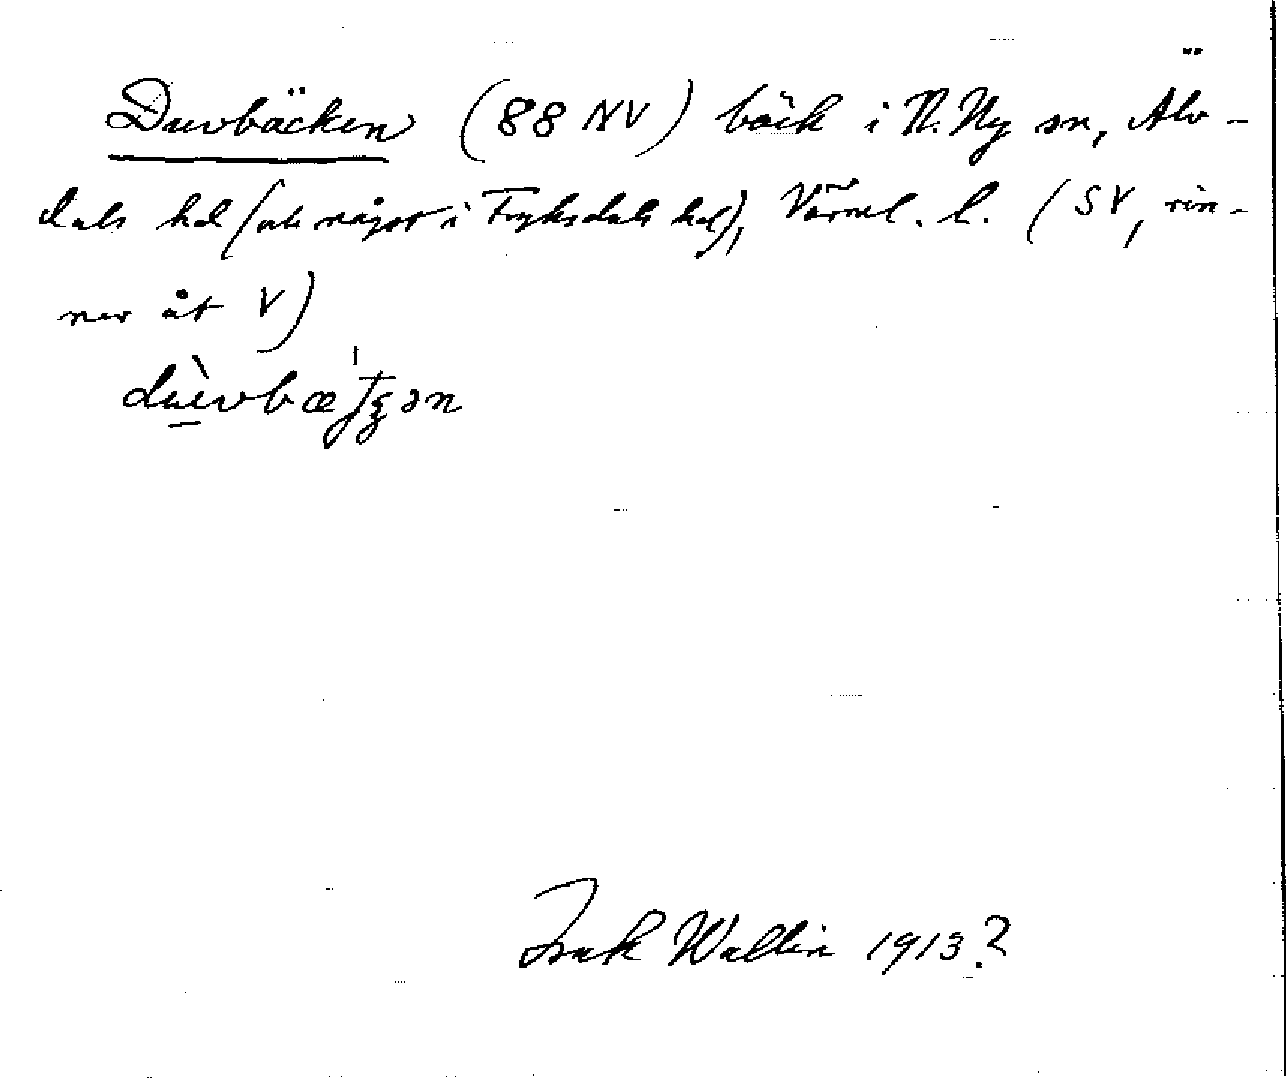 Duvbäcken (88 NV) bäck i N. Ny sn, Älv-
dals hd (ock något i Fryksdals hd), Värml. l. (SV, rin-
ner åt V)
Isak Wallin 1913?